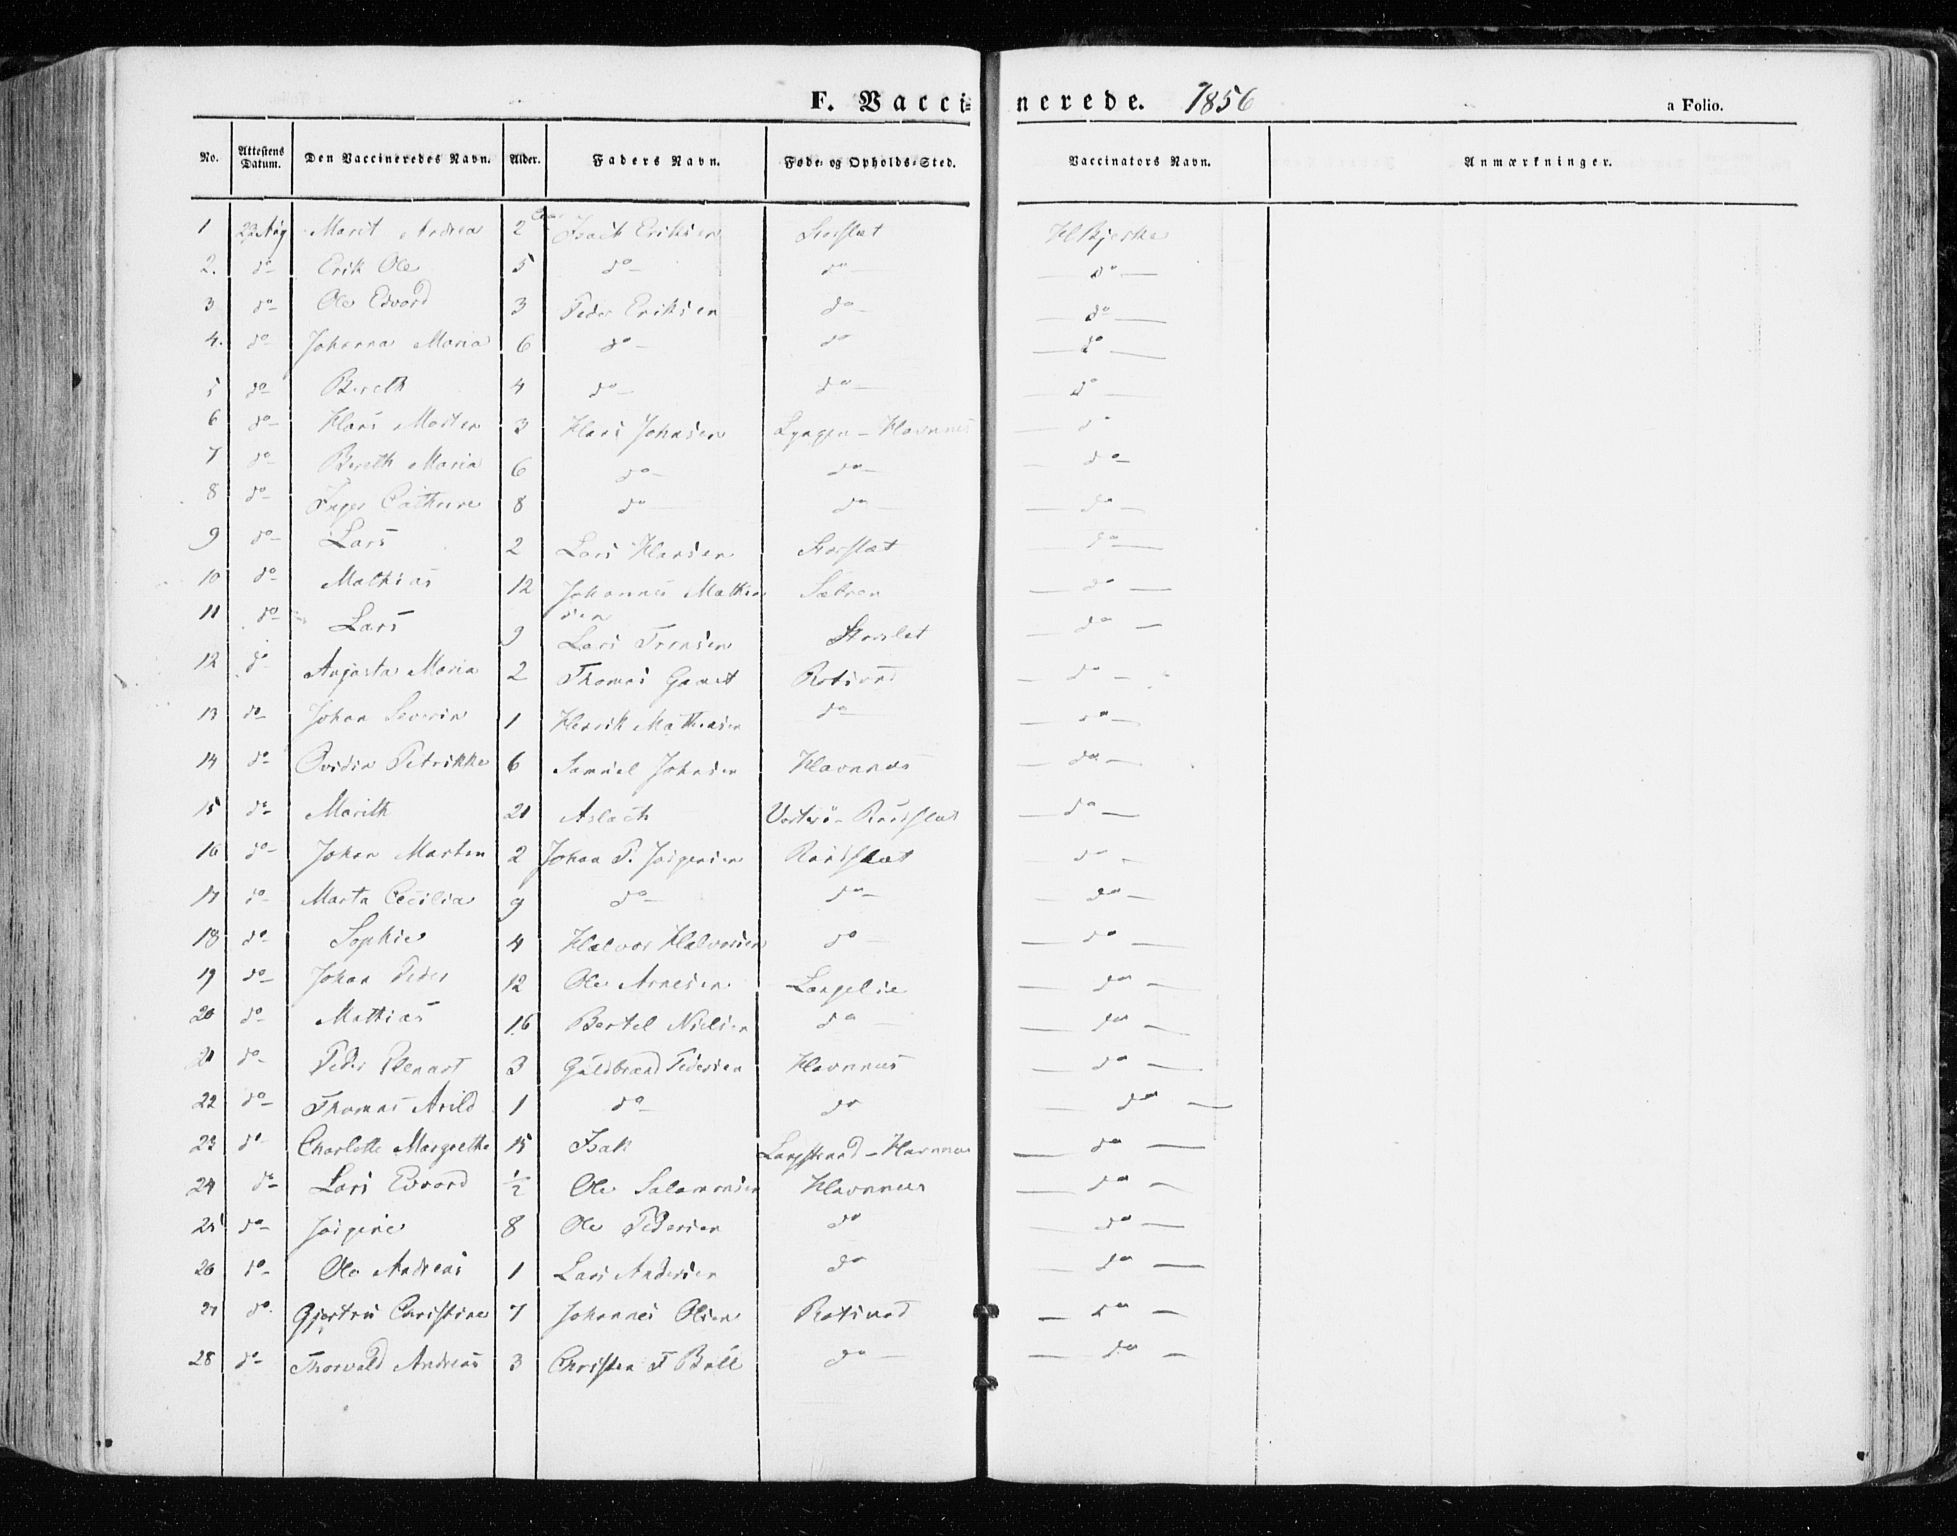 F. Vaccinerede. 1856
a Folio.
No. Attestens Datum. Den Vaccineredes Navn. Alder. Faders Navn. Føde- og Opholds-Sted. Vaccinators Navn. Anmærkninger.
1 22 Aug Marit Andrea 2 Isach Eriksen Storslet
2. do Erik Ole 5 do do do
3 do Ole Edvard 3 Peder Eriksen do do
4. do Johanna Maria 6 do do do
5 do Bereth 4 do do do
6 do Hans Morten 3 Hans Johnsen Lyngen - Havnnæs do
7 do Bereth Maria 6 do do do
8 do Inger Cathrine 8 do do do
9 do Lars 2 Lars Hansen Storslet do
10 do Mathias 12 Johannes Mathiasen Sætren do
11 do Lars 9 Lars Storslet do
12 do Augusta Maria 2 Thomas Rotsund do
13 do Johan Severin 1 Henrik Mathiesen do do
14 do Ovidia Petrikke 6 Samuel Johnsen Havnnæs do
15 do Marith 21 Aslach do
16 do Johan Morten 2 Johan P. Jørgensen do
17 do Marta Cecilia 9 do do do
18 do Sophie 4 Halvor Halvorsen do do
19 do Johan Peder 12 Ole Arnesen Langelie do
20 do Mathias 16 Bertel Nielsen do do
21 do Peder 3 Guldbrand Pedersen Havnnæs do
22 do Thomas Arild 1 do do do
23 do Charlotte Margrethe 15 Isak Langstrand - Havnnæs do
24 do Lars Edvard 1/2 Ole Salamonsen Havnnæs do
25 do Jørgine 8 Ole Pedersen do do
26 do Ole Andreas 1 Lars Andersen do do
27 do Gjertru Christine 7 Johannes Olsen Rotsund do
28 do Thorvald Andreas 3 Christen do do